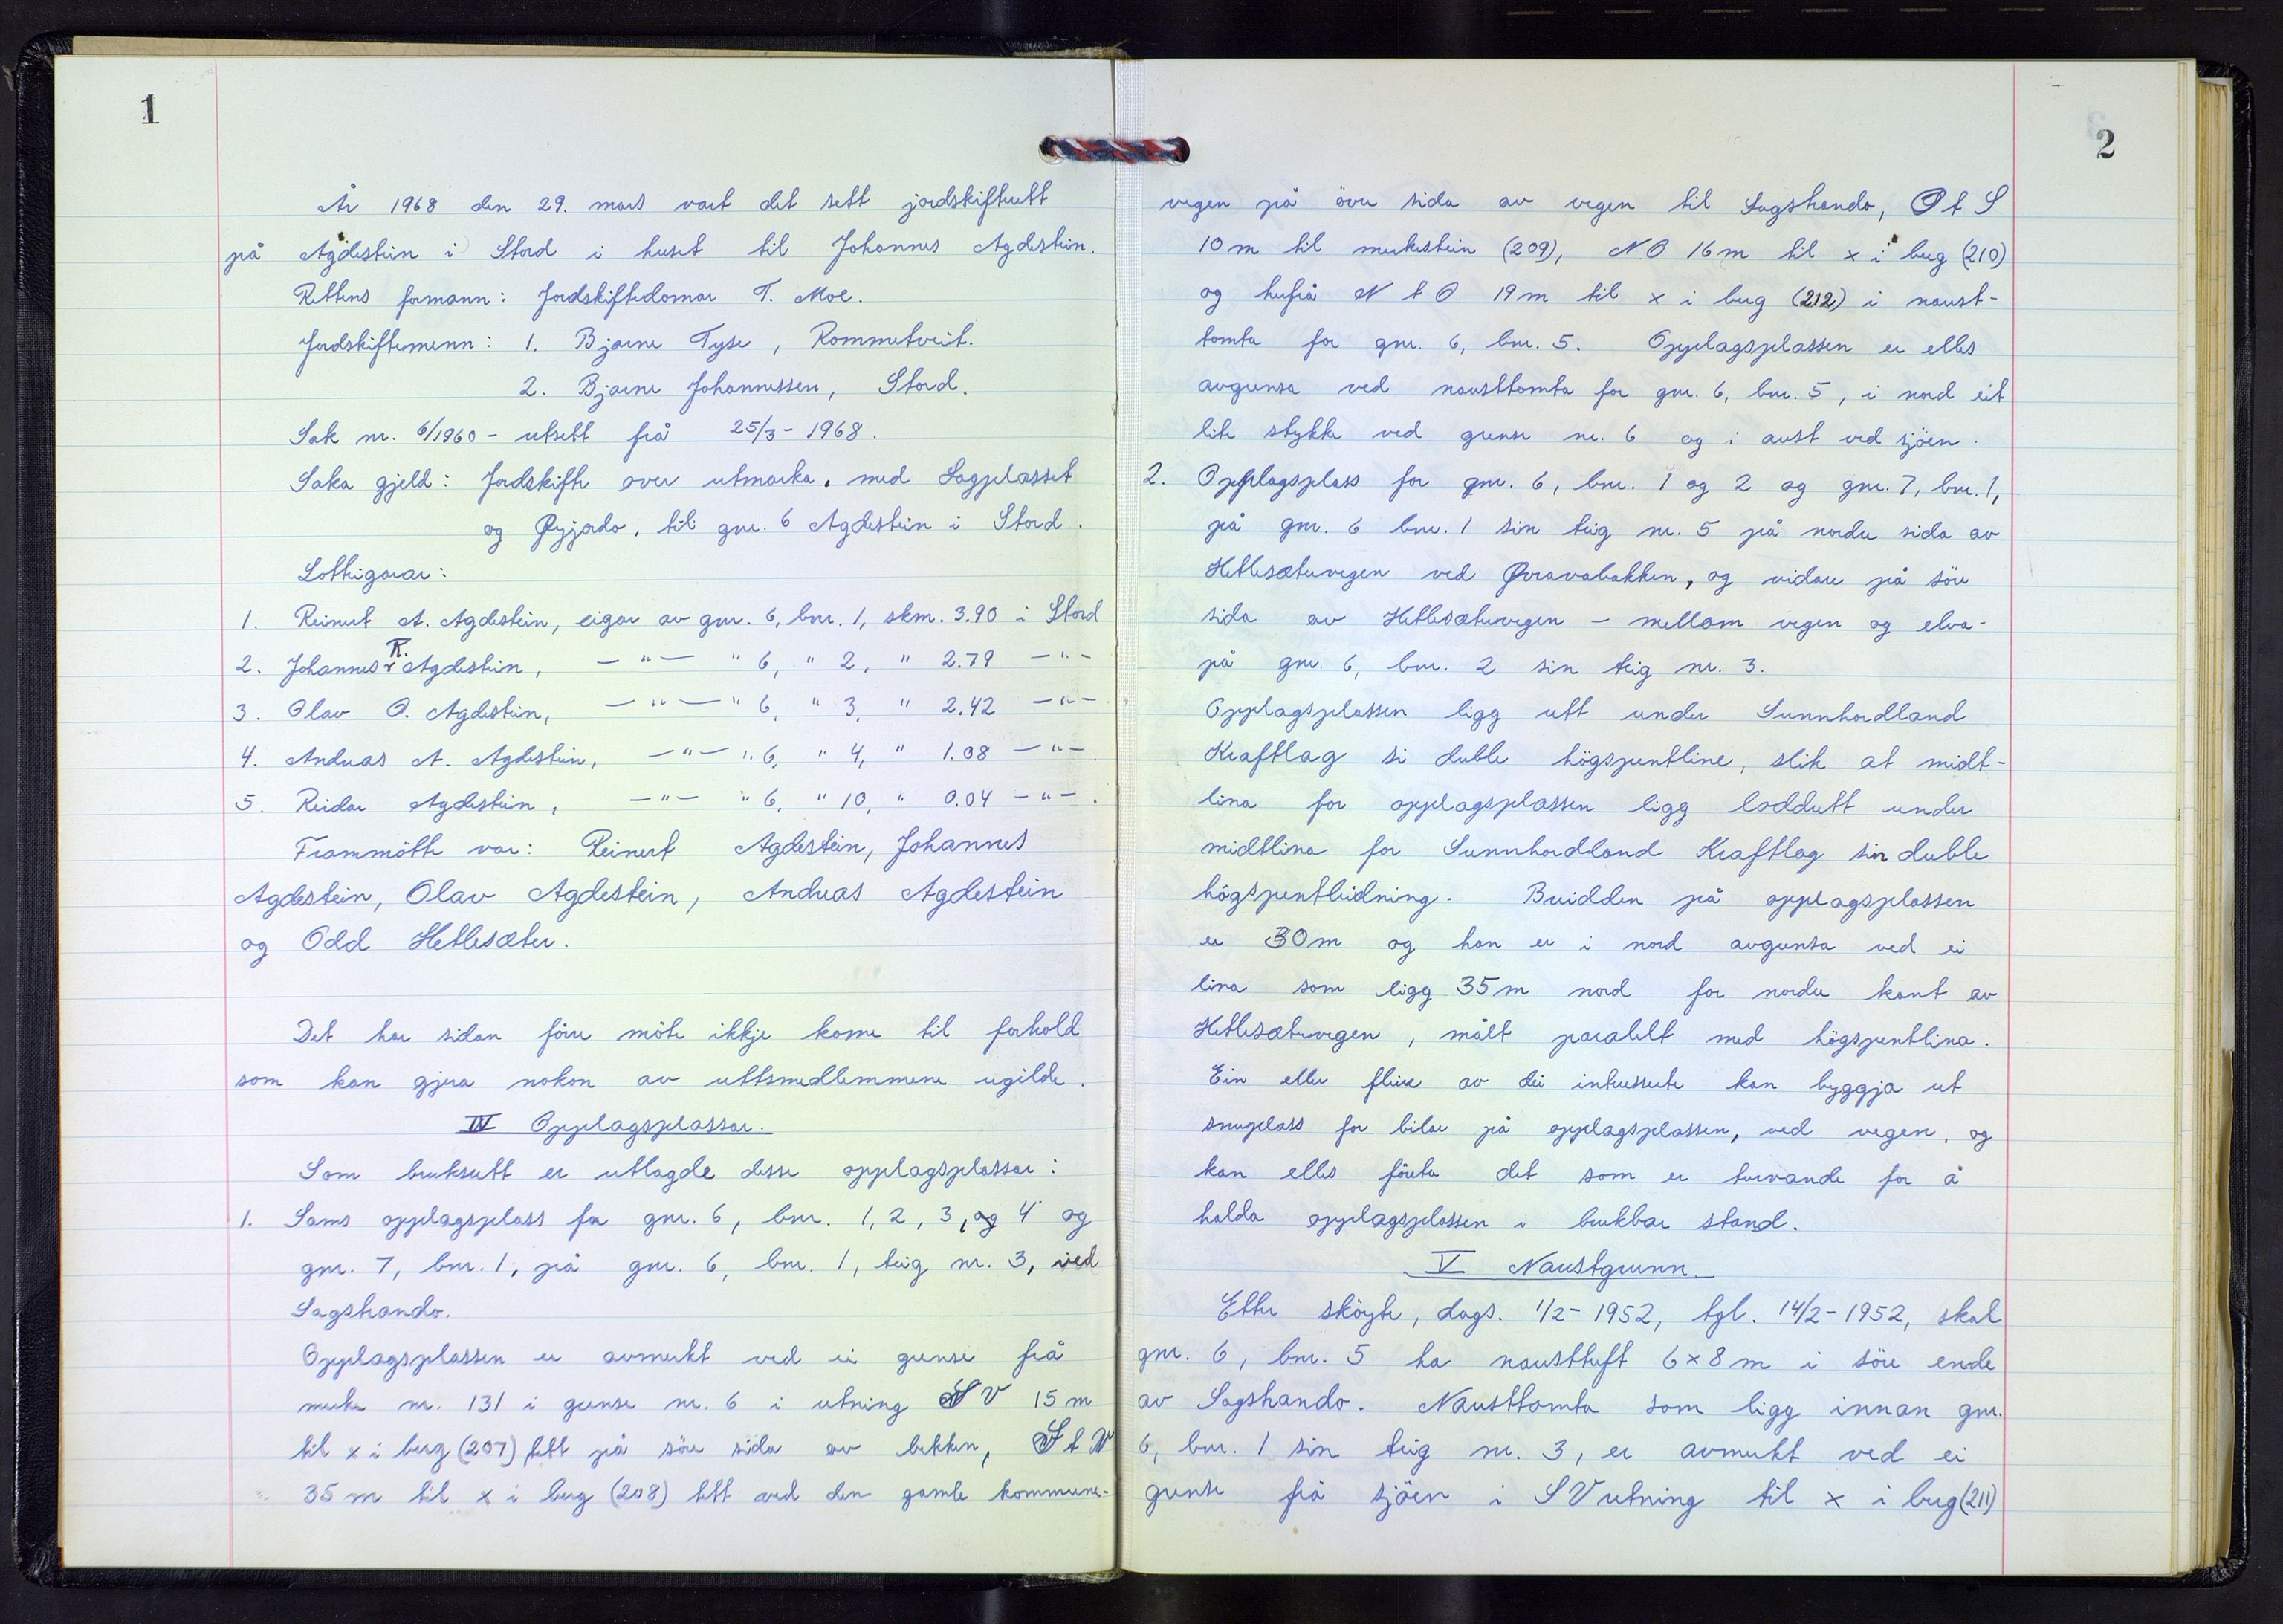 1
År 1968 den 29. mars vart det sett jordskifterett
på Agdestein i Stord i huset til Johannes Agdestein.
Rettens formann: Jordskiftedomar T. Moe.
Jordskiftemenn: 1. Bjarne Tyse, Rommetveit.
2. Bjarne Johannessen, Stord.
Sak nr. 6/1960 - utsett frå 25/3 - 1968.
Saka gjeld: Jordskifte over utmarka, med Sagplasset
og Øyjordo, til gnr. 6 Agdestein i Stord.
Lotteigarar:
1. Reinert A. Agdestein, eigar av gnr. 6, bnr. 1, skm. 3.90 i Stord
2. Johannes R. Agdestein, — " — " 6, " 2, " 2.79 — " —
3. Olav O. Agdestein, — " — " 6, " 3, " 2.42 — " —
4. Andreas A. Agdestein, — " — " 6, " 4, " 1.08 — " —
5. Reidar Agdestein, — " — " 6, " 10, " 0.04 — " — .
Frammötte var: Reinert Agdestein, Johannes
Agdestein, Olav Agdestein, Andreas Agdestein
og Odd Hetlesæter.
Det har sidan förre möte ikkje kome til forhold
som kan gjera nokon av rettsmedlemmene ugilde.
IV Opplagsplassar.
Som bruksrett er utlagde desse opplagsplassar:
1. Sams opplagsplass for gnr. 6, bnr. 1, 2, 3, og 4 og
gnr. 7, bnr. 1, på gnr. 6, bnr. 1, teig nr. 3, ved
Sagstrando.
Opplagsplassen er avmerkt ved ei grense frå
merke nr. 131 i grense nr. 6 i retning SV 15 m
til x i berg (207) tett på söre sida av bekken, S t V
35 m til x i berg (208) tett ved den gamle kommune-
2
vegen på övre sida av vegen til Sagstrando, O t S
10 m til merkestein (209), NO 16 m til x i berg (210)
og herfrå N t O 19 m til x i berg (212) i naust-
tomta for gnr. 6, bnr. 5. Opplagsplassen er elles
avgrensa ved nausttomta for gnr. 6, bnr. 5, i nord eit
lite stykke ved grense nr. 6 og i aust ved sjöen.
2. Opplagsplass for gnr. 6, bnr. 1 og 2 og gnr. 7, bnr. 1,
på gnr. 6 bnr. 1 sin teig nr. 5 på nordre sida av
Hetlesætervegen ved Øvravabakken, og vidare på söre
sida av Hetlesætervegen - mellom vegen og elva -
på gnr. 6, bnr. 2 sin teig nr. 3.
Opplagsplassen ligg rett under Sunnhordland
Kraftlag si duble högspentline, slik at midt-
lina for opplagsplassen ligg loddrett under
midtlina for Sunnhordland Kraftlag sin duble
högspentleidning. Breidden på opplagsplassen
er 30 m og han er i nord avgrensa ved ei
lina som ligg 35 m nord for nordre kant av
Hetlesætervegen, målt paralelt med högspentlina.
Ein eller fleire av dei interesserte kan byggja ut
snuplass for bilar på opplagsplassen, ved vegen, og
kan elles företa det som er turvande for å
halda opplagsplassen i brukbar stand.
V Naustgrunn.
Etter sköyte, dags. 1/2 - 1952, tgl. 14/2 - 1952, skal
gnr. 6, bnr. 5 ha nausttuft 6 x 8 m i söre ende
av Sagstrando. Nausttomta som ligg innan gnr.
6, bnr. 1 sin teig nr. 3, er avmerkt ved ei
grense frå sjöen i SV retning til x i berg (211)